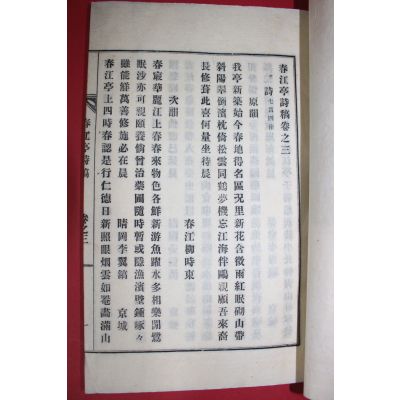 春江亭詩稿卷之三
詩 七言四律
原韻
我亭新築始今春地得名區里新花含微雨紅眠砌山帶
斜陽翠倒濱枕倚松雲同鶴夢機忘江海伴鷗親顧吾來裔
長修葺此喜何量坐待晨
春江柳時東
次韻
春宸華麗江上春春來物色各鮮新游魚躍水多相樂閒鷺
眠沙亦可親頤養偷曾治藥圃隨時暫或隱漁濱壁鍾啄々
雖能鮮萬善修施必在晨
晴岡李翼鎬 京城
春江亭上四時春認是行仁德日新照眼烟雲如罨畫滿山
春江亭詩稿 卷之三 一